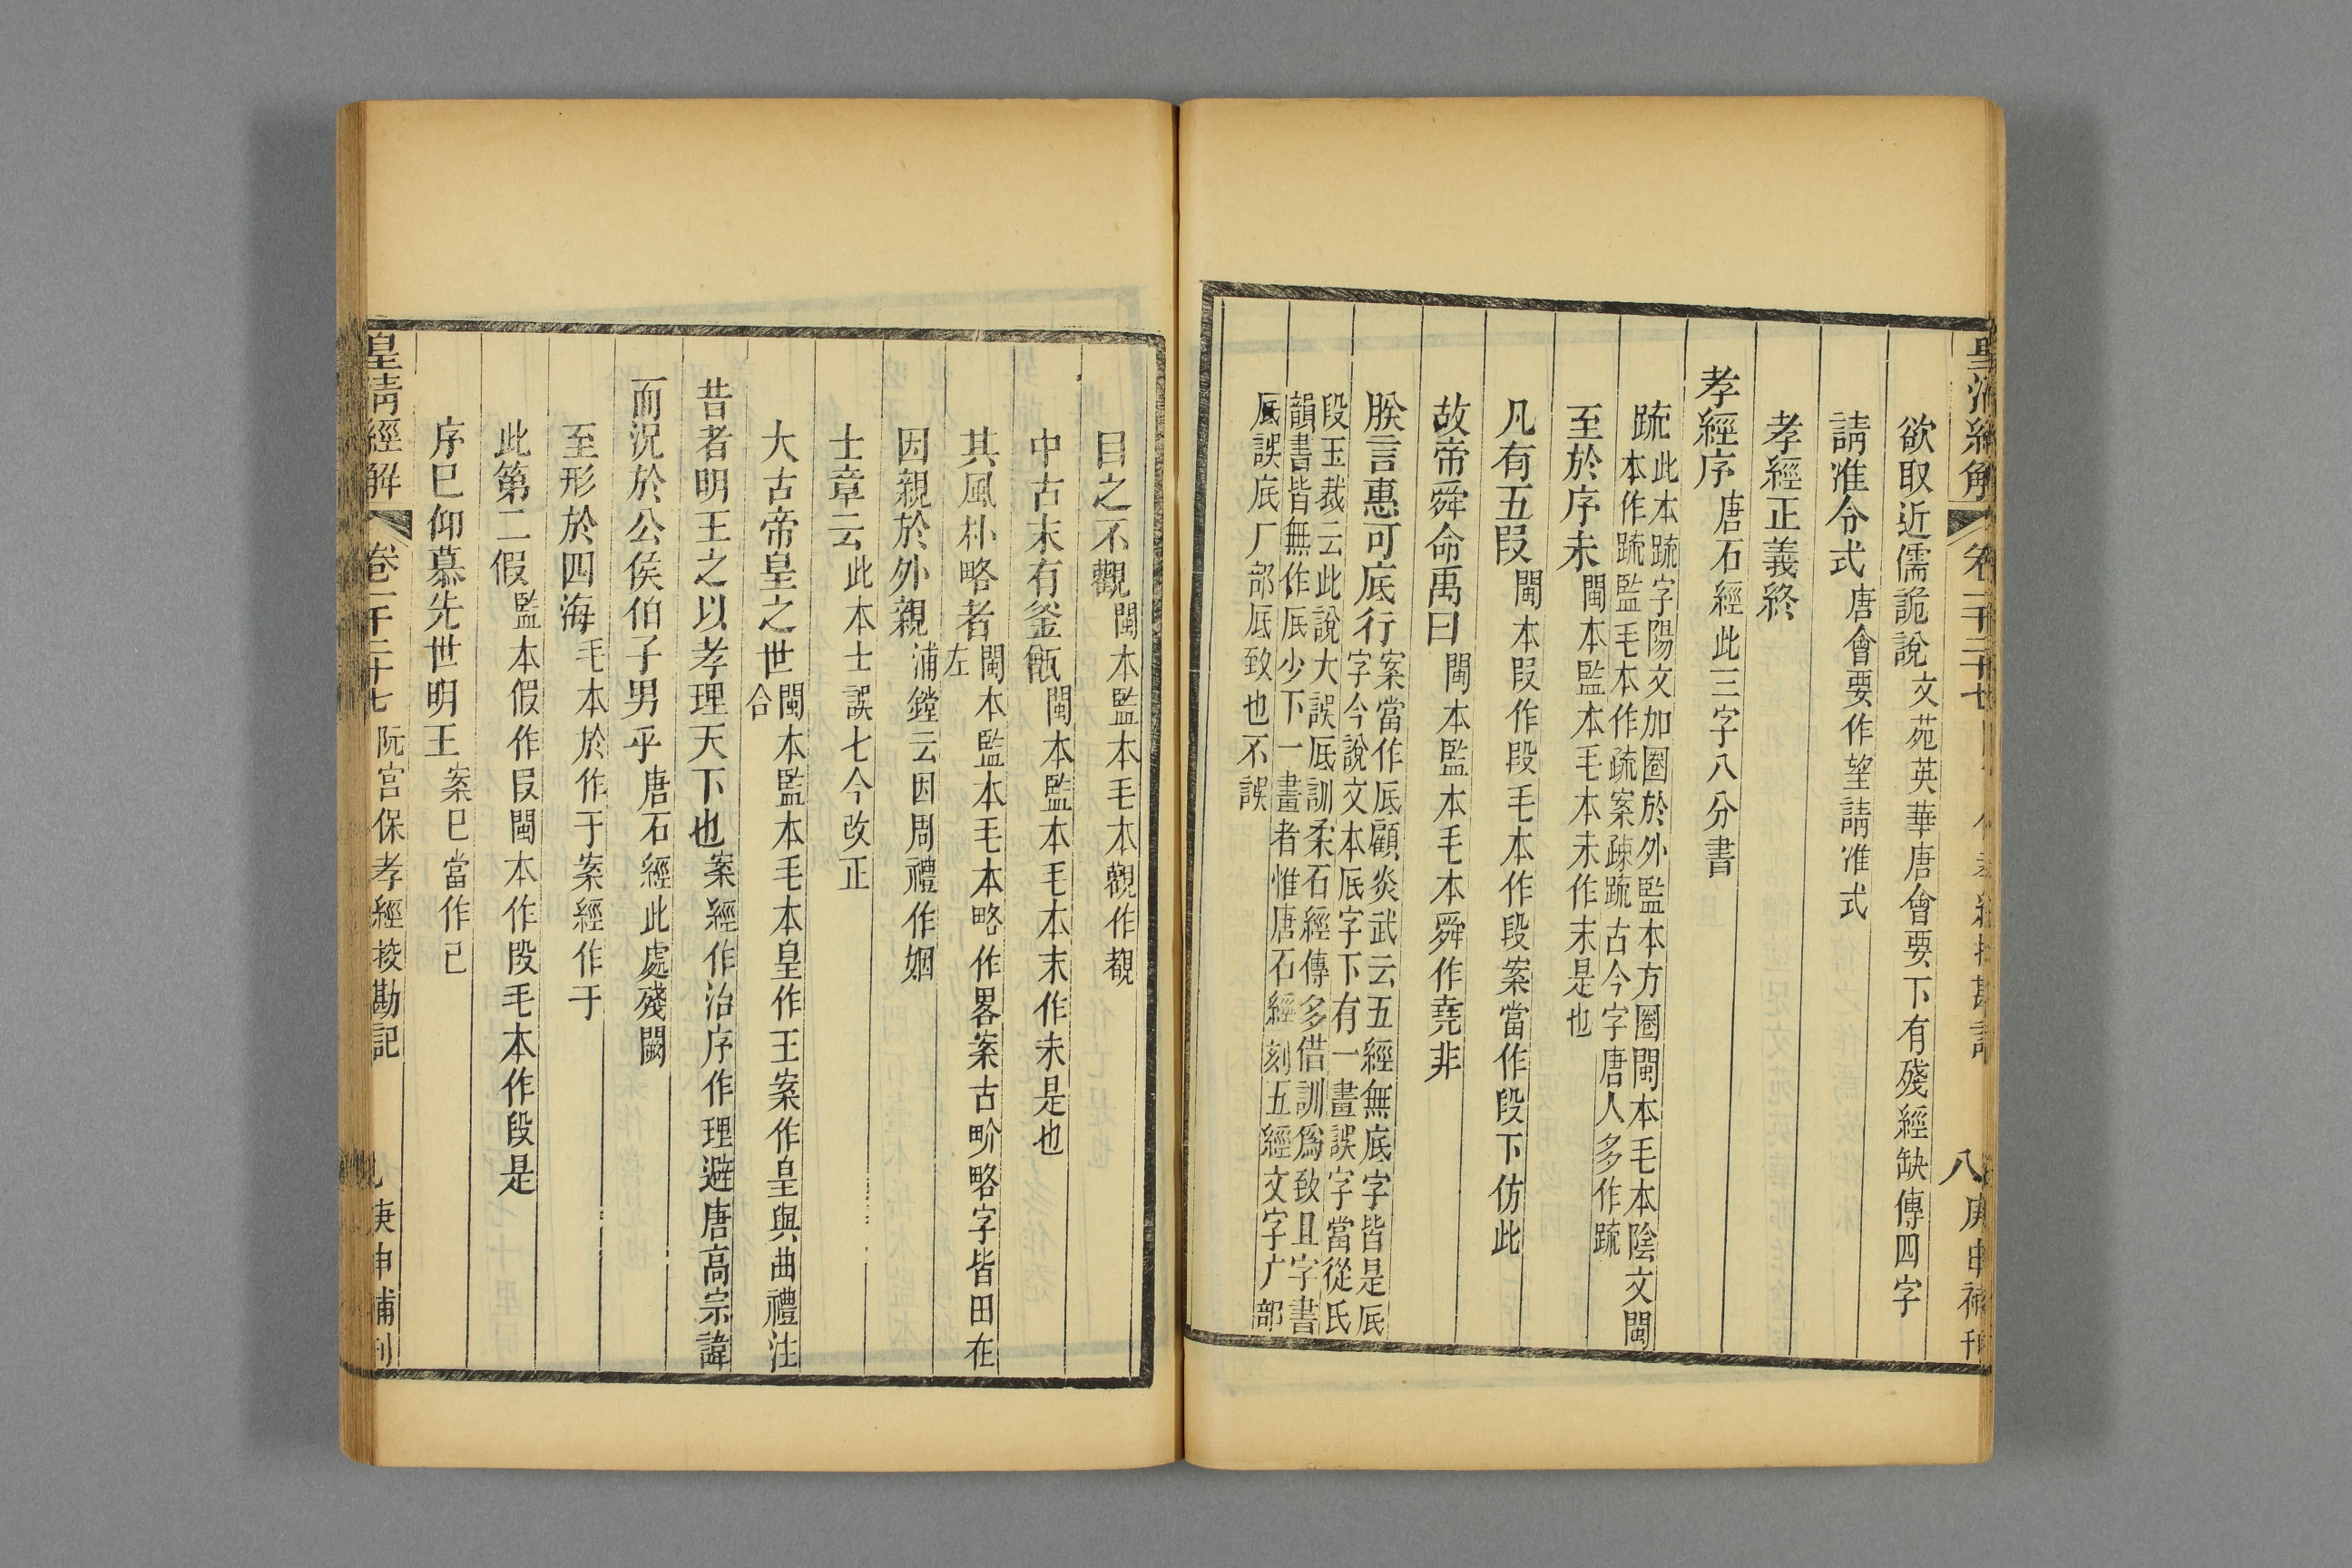 皇清經解 卷一千二十七
八 庚申補刊
欲取近儒詭說文苑英華唐會要下有殘經缺傳四字
請准令式唐會要作望請准式
孝經正義終
孝經序唐石經此三字八分書
䟽此本䟽字陽文加圈於外監本方圈閩本毛本陰文閩
本作䟽監毛本作疏案疎䟽古今字唐人多作䟽
至於序末閩本監本毛本未作末是也
凡有五叚閩本叚作段毛本作段案當作段下仿此
故帝舜命禹曰閩本監本毛本舜作堯非
朕言惠可底行案當作厎顧炎武云五經無底字皆是厎
字今說文本厎字下有一畫誤字當從氏
段玉裁云此說大誤厎訓柔石經傳多借訓爲致且字書
韻書皆無作厎少下一畫者惟唐石經刻五經文字广部
厎誤底厂部厎致也不誤
目之不觀閩本監本毛本觀作覩
中古末有釜甑閩本監本毛本末作未是也
其風朴略者閩本監本毛本略作畧案古畍略字皆田在
左
因親於外親浦鏜云因周禮作婣
士章云此本士誤七今改正
大古帝皇之世閩本監本毛本皇作王案作皇與曲禮注
合
昔者明王之以孝理天下也案經作治序作理避唐高宗諱
而況於公侯伯子男乎唐石經此處殘闕
至形於四海毛本於作于案經作于
此第二假監本假作叚閩本作叚毛本作段是
序巳仰慕先世明王案巳當作已
皇淸經解 卷一千二十七 阮宮保孝經挍勘記
庚申補刊